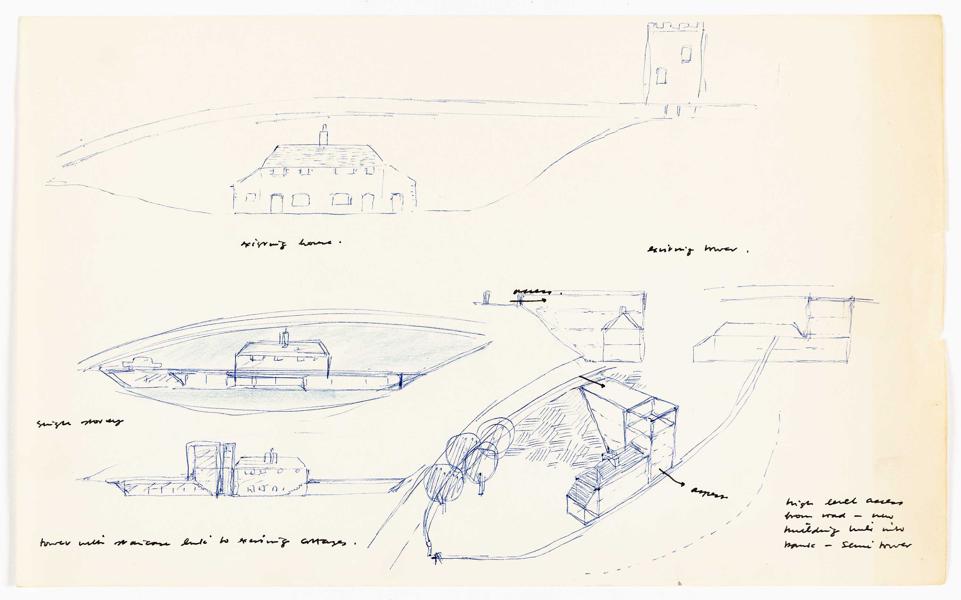 existing house.
existing tower.
access.
single storey
aspect
tower with staircase link to existing cottages.
high level access
from road – new
building links into
bank – semi tower